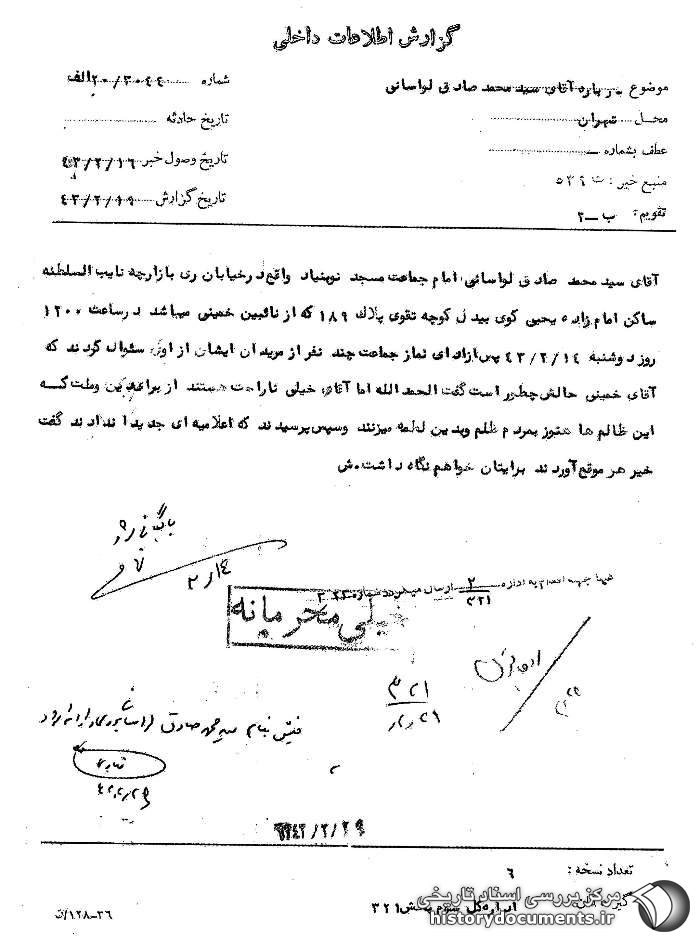 گزارش اطلاعات داخلی
موضوع درباره آقای سید محمد صادق لواسانی
شماره ۲۰/۳۰۴۴ الف
محل تهران
تاریخ حادثه
عطف بشماره
تاریخ وصول خبر ۴۳/۲/۱۶
منبع خبر : ۵۳۹
تاریخ گزارش ۴۳/۲/۱۹
تقویم : ب ـ ۲
آقای سید محمد صادق لواسانی امام جماعت مسجد نوبنیاد واقع در خیابان ری بازارچه نایب السلطنه
ساکن امام زاده یحیی کوی بیدل کوچه تقوی پلاک ۱۸۹ که از نائبین خمینی میباشد در ساعت ۱۲۰۰
روز دوشنبه ۴۳/۲/۱۴ پس از ادای نماز جماعت چند نفر از مریدان ایشان از اوی سئوال کردند که
آقای خمینی حالش چطور است گفت الحمد الله اما آقای خیلی ناراحت هستند از برای دین وملت که
این ظالم ها هنوز بمردم ظلم وبدین لطمه میزنند وسپس پرسیدند که اعلامیه ای جدید اندادند گفت
خیر هر موقع آوردند برایتان خواهم نگاه داشت.ش
بایگانی شود
۲/۱۴
به اداره ۲/۳۲۱ ارسال میگردد
خیلی محرمانه
۳۲۱
۲/۲۹
سید محمد صادق
۱۳۴۳/۲/۲۹
تعداد نسخه : ۶
اداره کل سوم بخش ۳۲۱
۳۶-۱۲۸/ث
مرکز بررسی اسناد تاریخی
historydocuments.ir